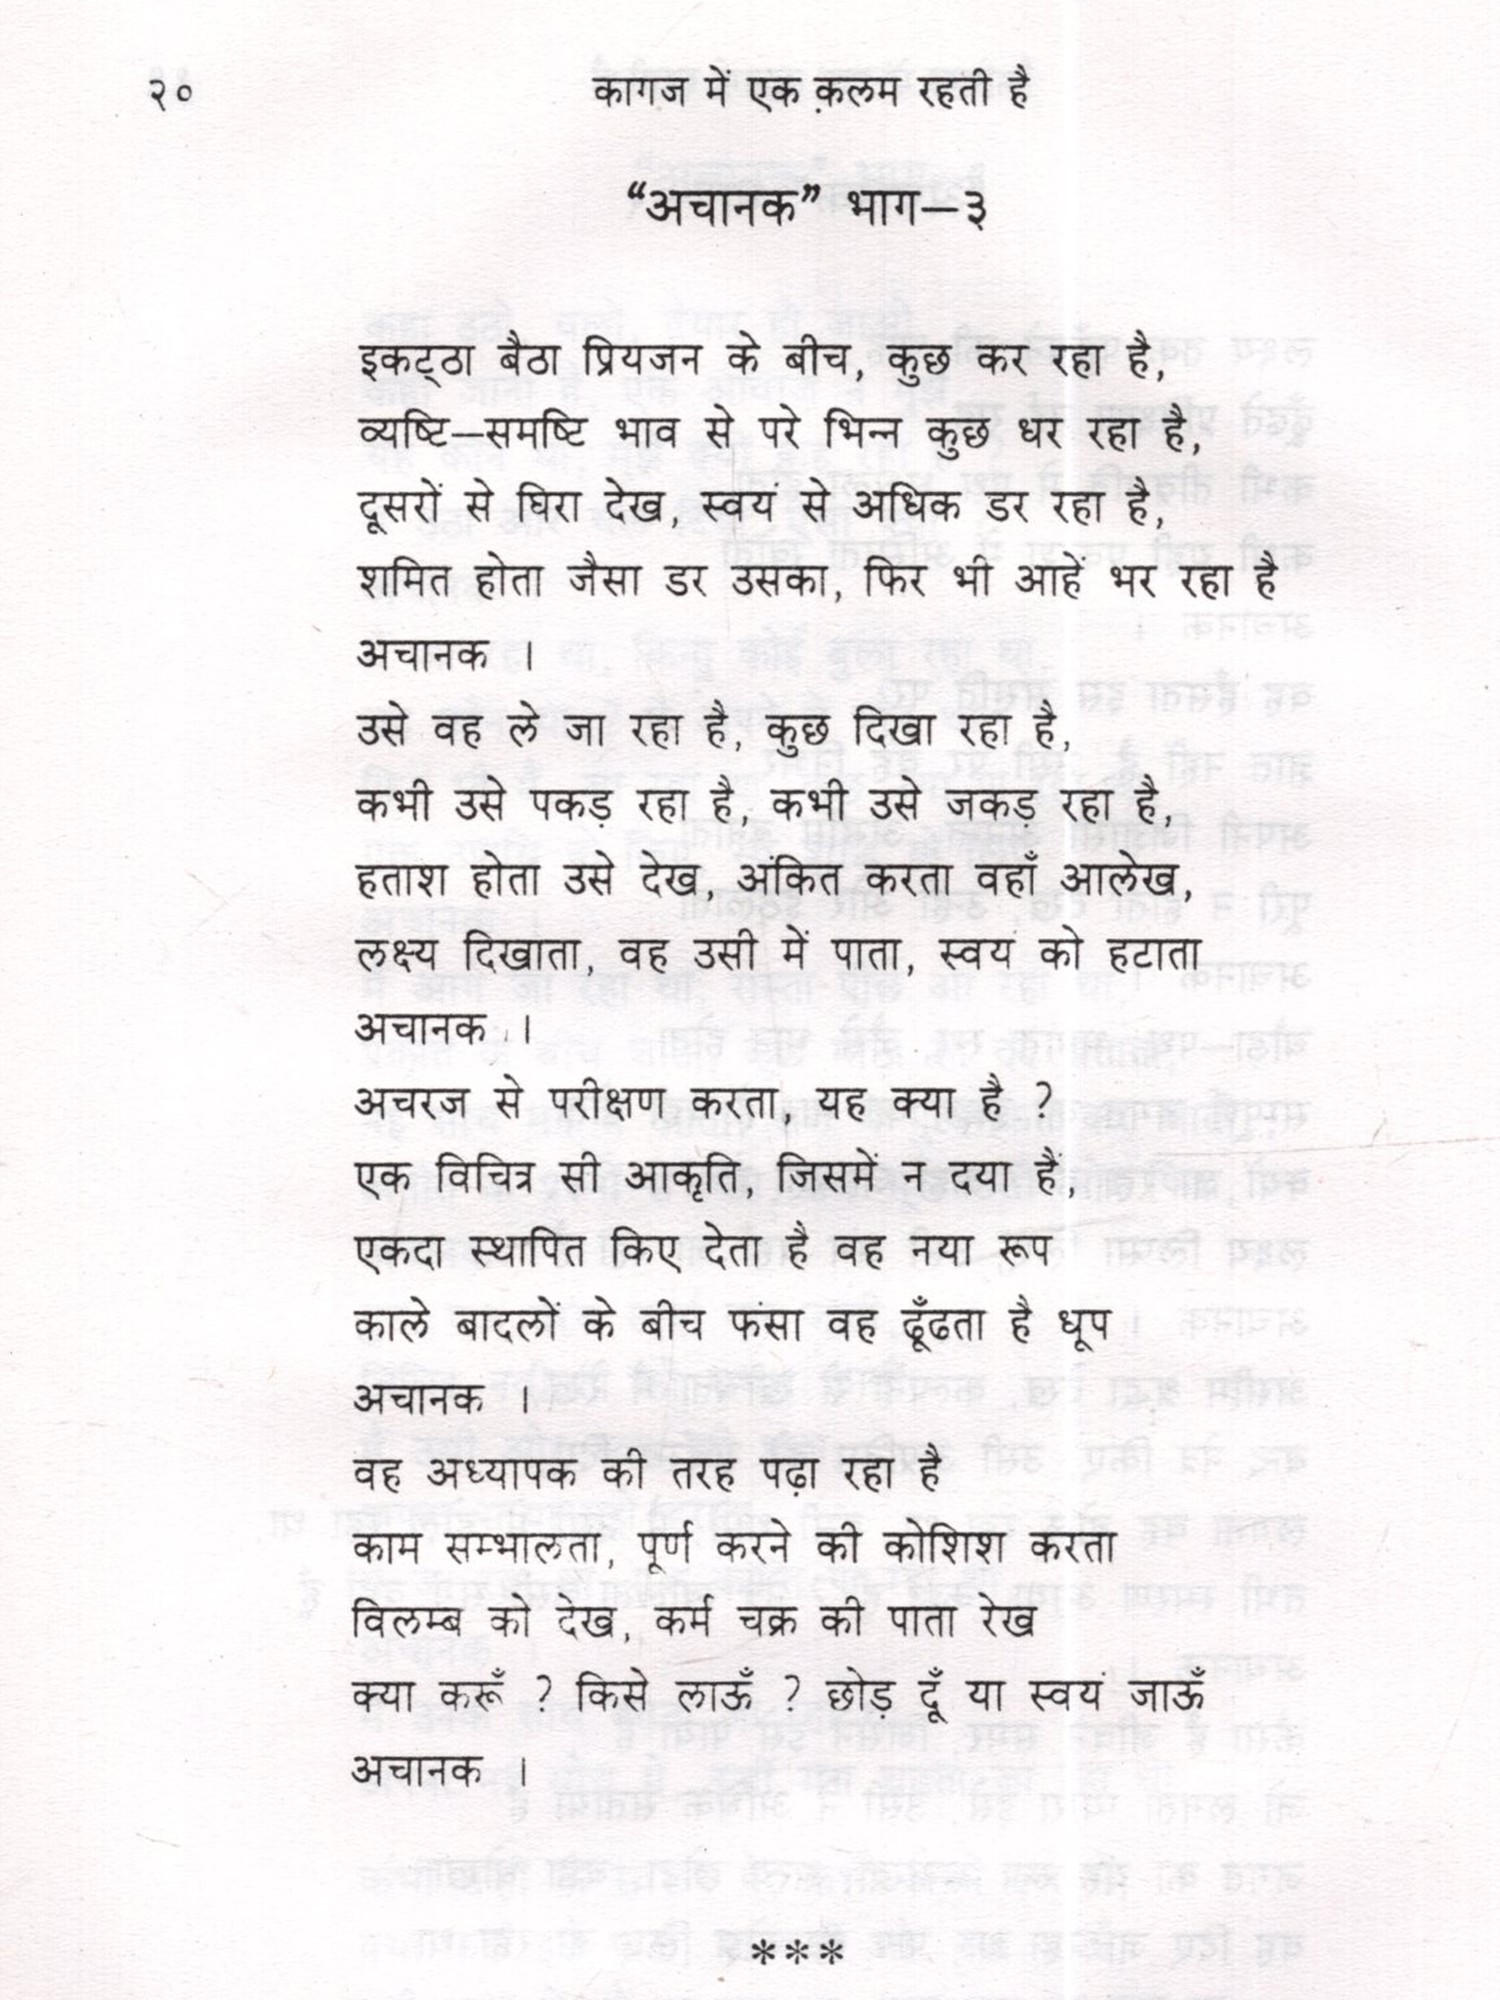 २० कागज में एक क़लम रहती है
“अचानक” भाग–३
इकट्ठा बैठा प्रियजन के बीच, कुछ कर रहा है,
व्यष्टि–समष्टि भाव से परे भिन्न कुछ धर रहा है,
दूसरों से घिरा देख, स्वयं से अधिक डर रहा है,
शमित होता जैसा डर उसका, फिर भी आहें भर रहा है
अचानक ।
उसे वह ले जा रहा है, कुछ दिखा रहा है,
कभी उसे पकड़ रहा है, कभी उसे जकड़ रहा है,
हताश होता उसे देख, अंकित करता वहाँ आलेख,
लक्ष्य दिखाता, वह उसी में पाता, स्वयं को हटाता
अचानक ।
अचरज से परीक्षण करता, यह क्या है ?
एक विचित्र सी आकृति, जिसमें न दया हैं,
एकदा स्थापित किए देता है वह नया रूप
काले बादलों के बीच फंसा वह ढूँढता है धूप
अचानक ।
वह अध्यापक की तरह पढ़ा रहा है
काम सम्भालता, पूर्ण करने की कोशिश करता
विलम्ब को देख, कर्म चक्र की पाता रेख
क्या करूँ ? किसे लाऊँ ? छोड़ दूँ या स्वयं जाऊँ
अचानक ।
***